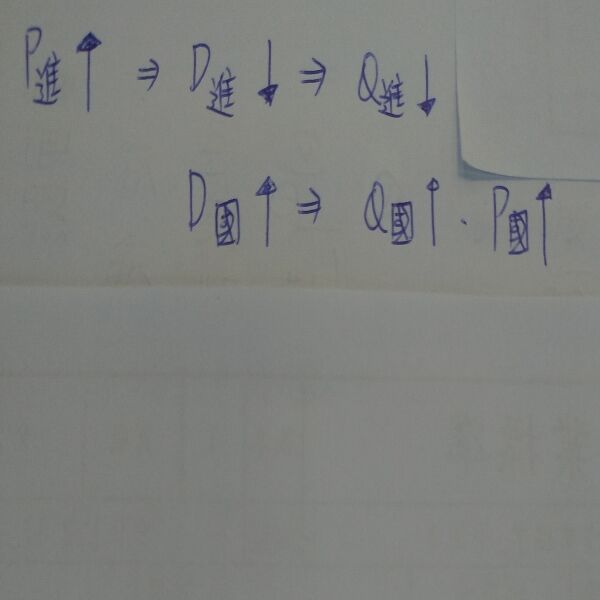 P進↑ ⇒ D進↓ ⇒ Q進↓
D國↑ ⇒ Q國↑．P國↑